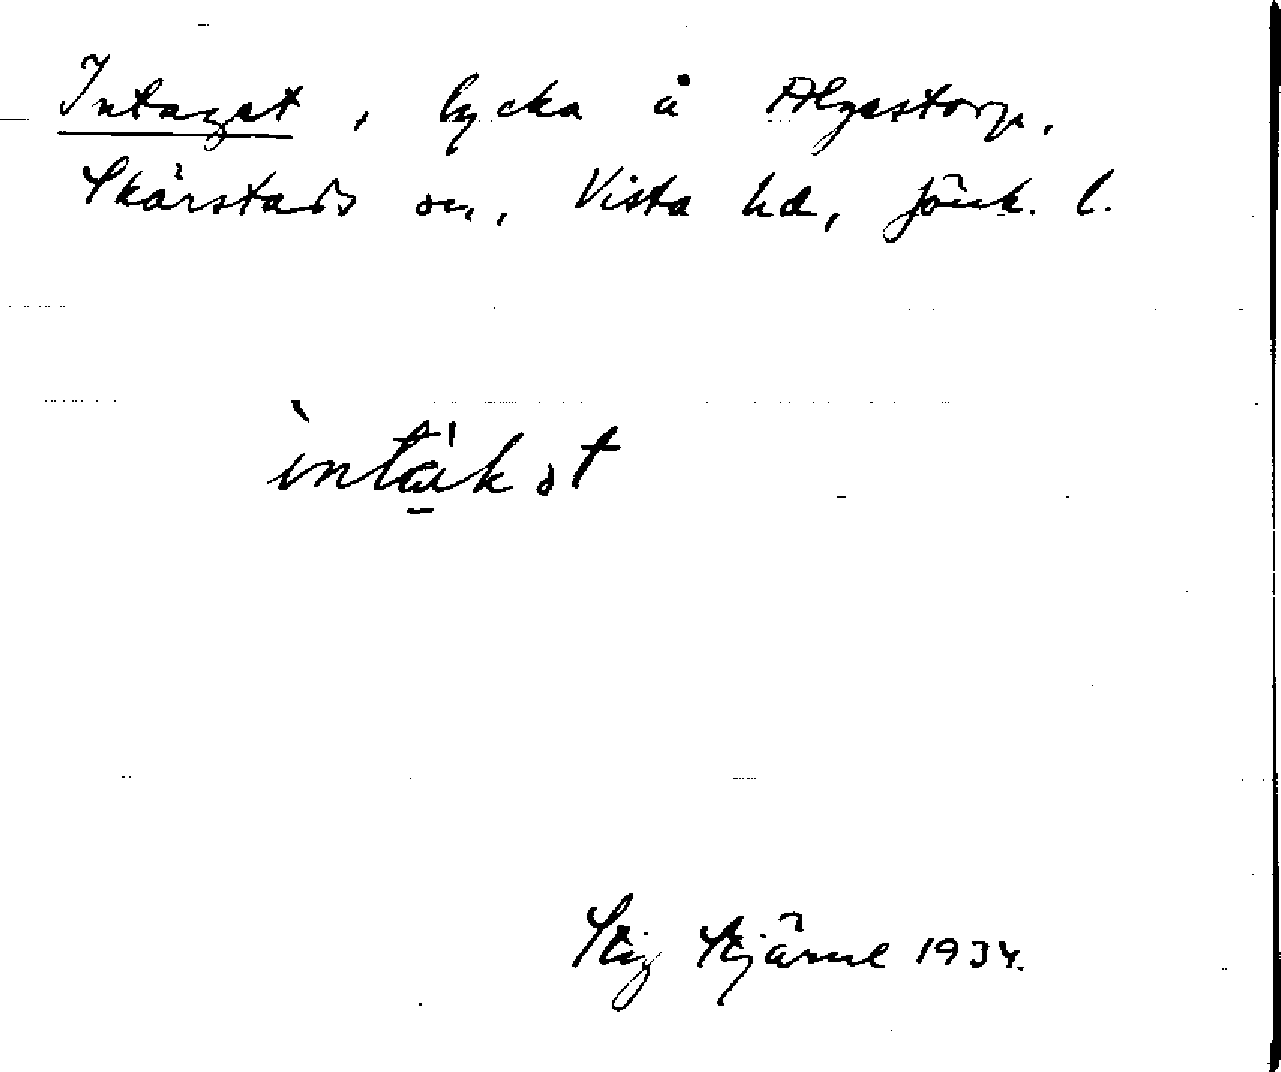 Intaget, lycka å Algestorp,
Skärstads sn, Vista hd, Jönk. l.
ìntàkət
Stig Stjärne 1934.